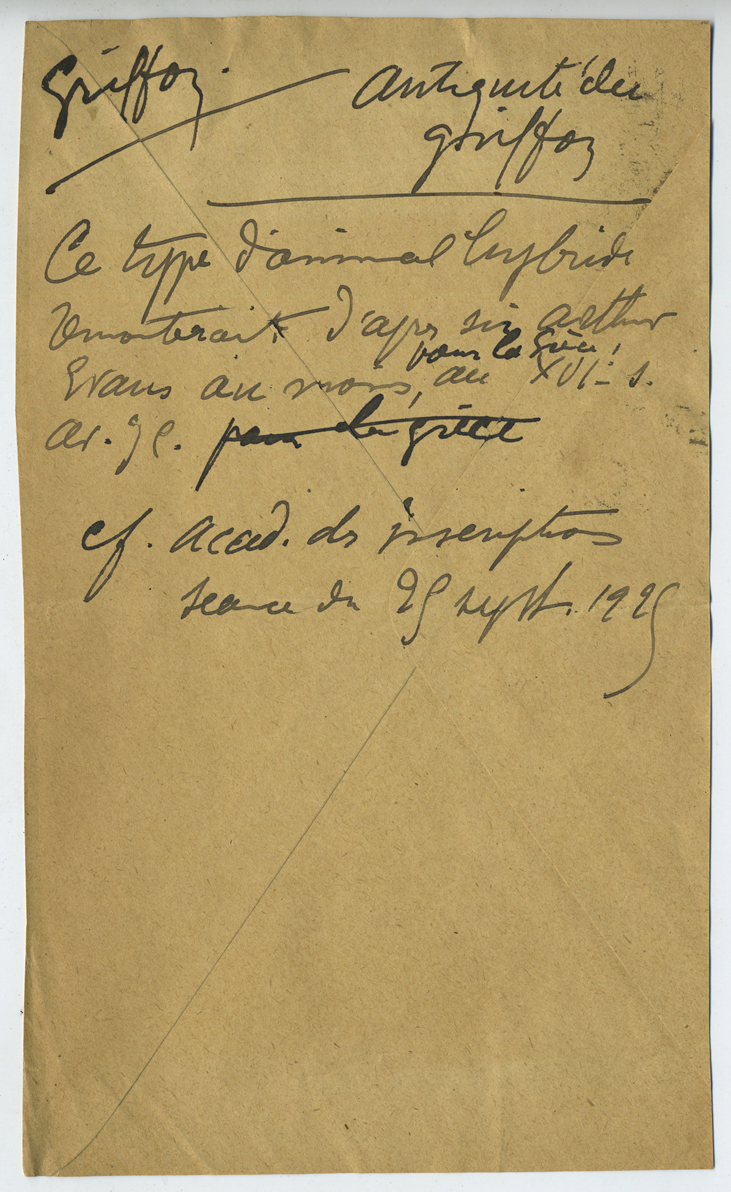 Griffon. Antiquité du
griffon
Ce type d'animal hybride
remonterait d'après sir Arthur
pour la Grèce,
Evans au moins, au XVIe s.
av. J C. pour la grèce
cf. Acad. des inscriptions
séance du 25 sept. 1925